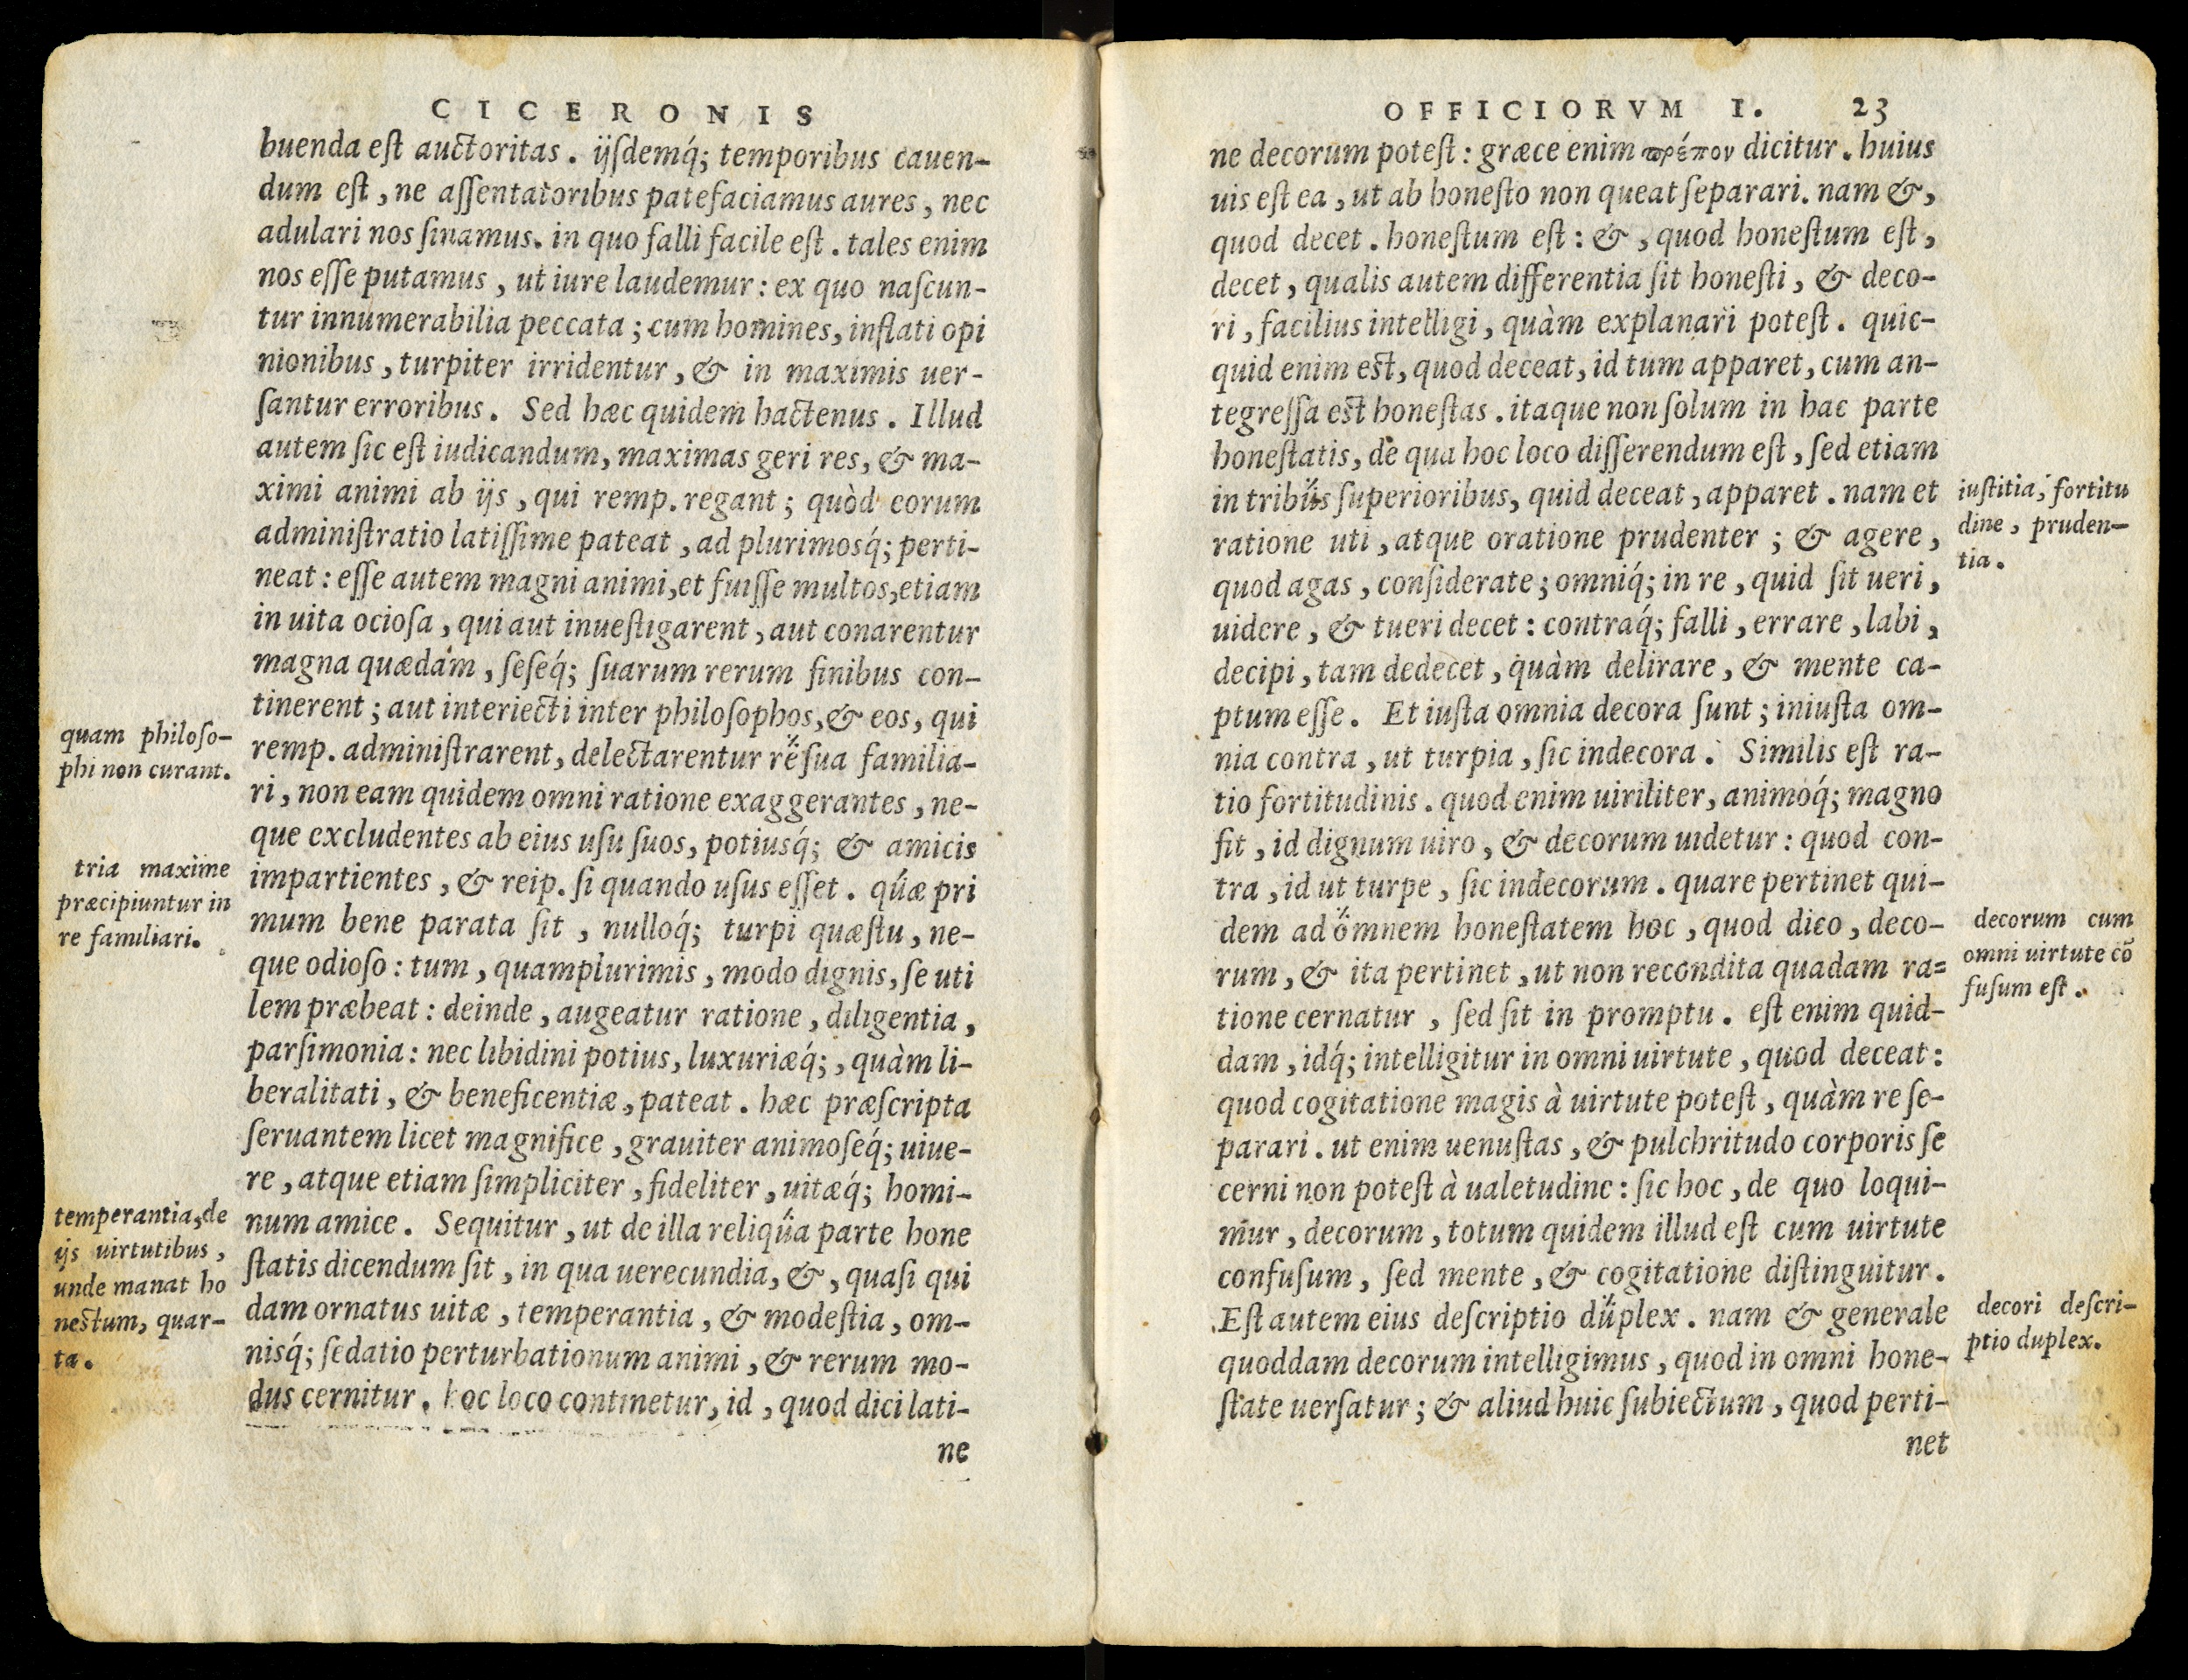 CICERONIS
buenda eſt auctoritas. ijſdemq́; temporibus cauen-
dum eſt, ne aſſentatoribus patefaciamus aures, nec
adulari nos ſinamus. in quo falli facile eſt. tales enim
nos eſſe putamus, ut iure laudemur: ex quo naſcun-
tur innumerabilia peccata; cum homines, inflati opi
nionibus, turpiter irridentur, & in maximis uer-
ſantur erroribus. Sed hæc quidem hactenus. Illud
autem ſic eſt iudicandum, maximas geri res, & ma-
ximi animi ab ijs, qui remp. regant; quòd eorum
adminiſtratio latiſſime pateat, ad plurimosq́; perti-
neat: eſſe autem magni animi, et fuiſſe multos, etiam
in uita ocioſa, qui aut inueſtigarent, aut conarentur
magna quædam, ſeſeq́; ſuarum rerum finibus con-
tinerent; aut interiecti inter philoſophos, & eos, qui
remp. adminiſtrarent, delectarentur re ſua familia-
ri, non eam quidem omni ratione exaggerantes, ne-
que excludentes ab eius uſu ſuos, potiusq́; & amicis
impartientes, & reip. ſi quando uſus eſſet. quæ pri
mum bene parata ſit, nulloq́; turpi quæſtu, ne-
que odioſo: tum, quamplurimis, modo dignis, ſe uti
lem præbeat: deinde, augeatur ratione, diligentia,
parſimonia: nec libidini potius, luxuriæq́;, quàm li-
beralitati, & beneficentiæ, pateat. hæc præſcripta
ſeruantem licet magnifice, grauiter animoſeq́; uiue-
re, atque etiam ſimpliciter, fideliter, uitæq́; homi-
num amice. Sequitur, ut de illa reliqua parte hone
ſtatis dicendum ſit, in qua uerecundia, &, quaſi qui
dam ornatus uitæ, temperantia, & modeſtia, om-
nisq́; ſedatio perturbationum animi, & rerum mo-
dus cernitur. hoc loco continetur, id, quod dici lati-
ne
quam philoſo-
phi non curant.
tria maxime
præcipiuntur in
re familiari.
temperantia, de
ijs uirtutibus,
unde manat ho
neſtum, quar-
ta.
OFFICIORVM I. 23
ne decorum poteſt: græce enim πρέπον dicitur. huius
uis eſt ea, ut ab honeſto non queat ſeparari. nam &,
quod decet. honeſtum eſt: &, quod honeſtum eſt,
decet, qualis autem differentia ſit honeſti, & deco-
ri, facilius intelligi, quàm explanari poteſt. quic-
quid enim eſt, quod deceat, id tum apparet, cum an-
tegreſſa eſt honeſtas. itaque non ſolum in hac parte
honeſtatis, de qua hoc loco diſſerendum eſt, ſed etiam
in tribus ſuperioribus, quid deceat, apparet. nam et
ratione uti, atque oratione prudenter; & agere,
quod agas, conſiderate; omniq́; in re, quid ſit ueri,
uidere, & tueri decet: contraq́; falli, errare, labi,
decipi, tam dedecet, quàm delirare, & mente ca-
ptum eſſe. Et iuſta omnia decora ſunt; iniuſta om-
nia contra, ut turpia, ſic indecora. Similis eſt ra-
tio fortitudinis. quod enim uiriliter, animoq́; magno
fit, id dignum uiro, & decorum uidetur: quod con-
tra, id ut turpe, ſic indecorum. quare pertinet qui-
dem ad omnem honeſtatem hoc, quod dico, deco-
rum, & ita pertinet, ut non recondita quadam ra=
tione cernatur, ſed ſit in promptu. eſt enim quid-
dam, idq́; intelligitur in omni uirtute, quod deceat:
quod cogitatione magis à uirtute poteſt, quàm re ſe-
parari. ut enim uenuſtas, & pulchritudo corporis ſe
cerni non poteſt à ualetudine: ſic hoc, de quo loqui-
mur, decorum, totum quidem illud eſt cum uirtute
confuſum, ſed mente, & cogitatione diſtinguitur.
Eſt autem eius deſcriptio duplex. nam & generale
quoddam decorum intelligimus, quod in omni hone-
ſtate uerſatur; & aliud huic ſubiectum, quod perti-
net
iuſtitia, fortitu
dine, pruden-
tia.
decorum cum
omni uirtute cō
fuſum eſt.
decori deſcri-
ptio duplex.